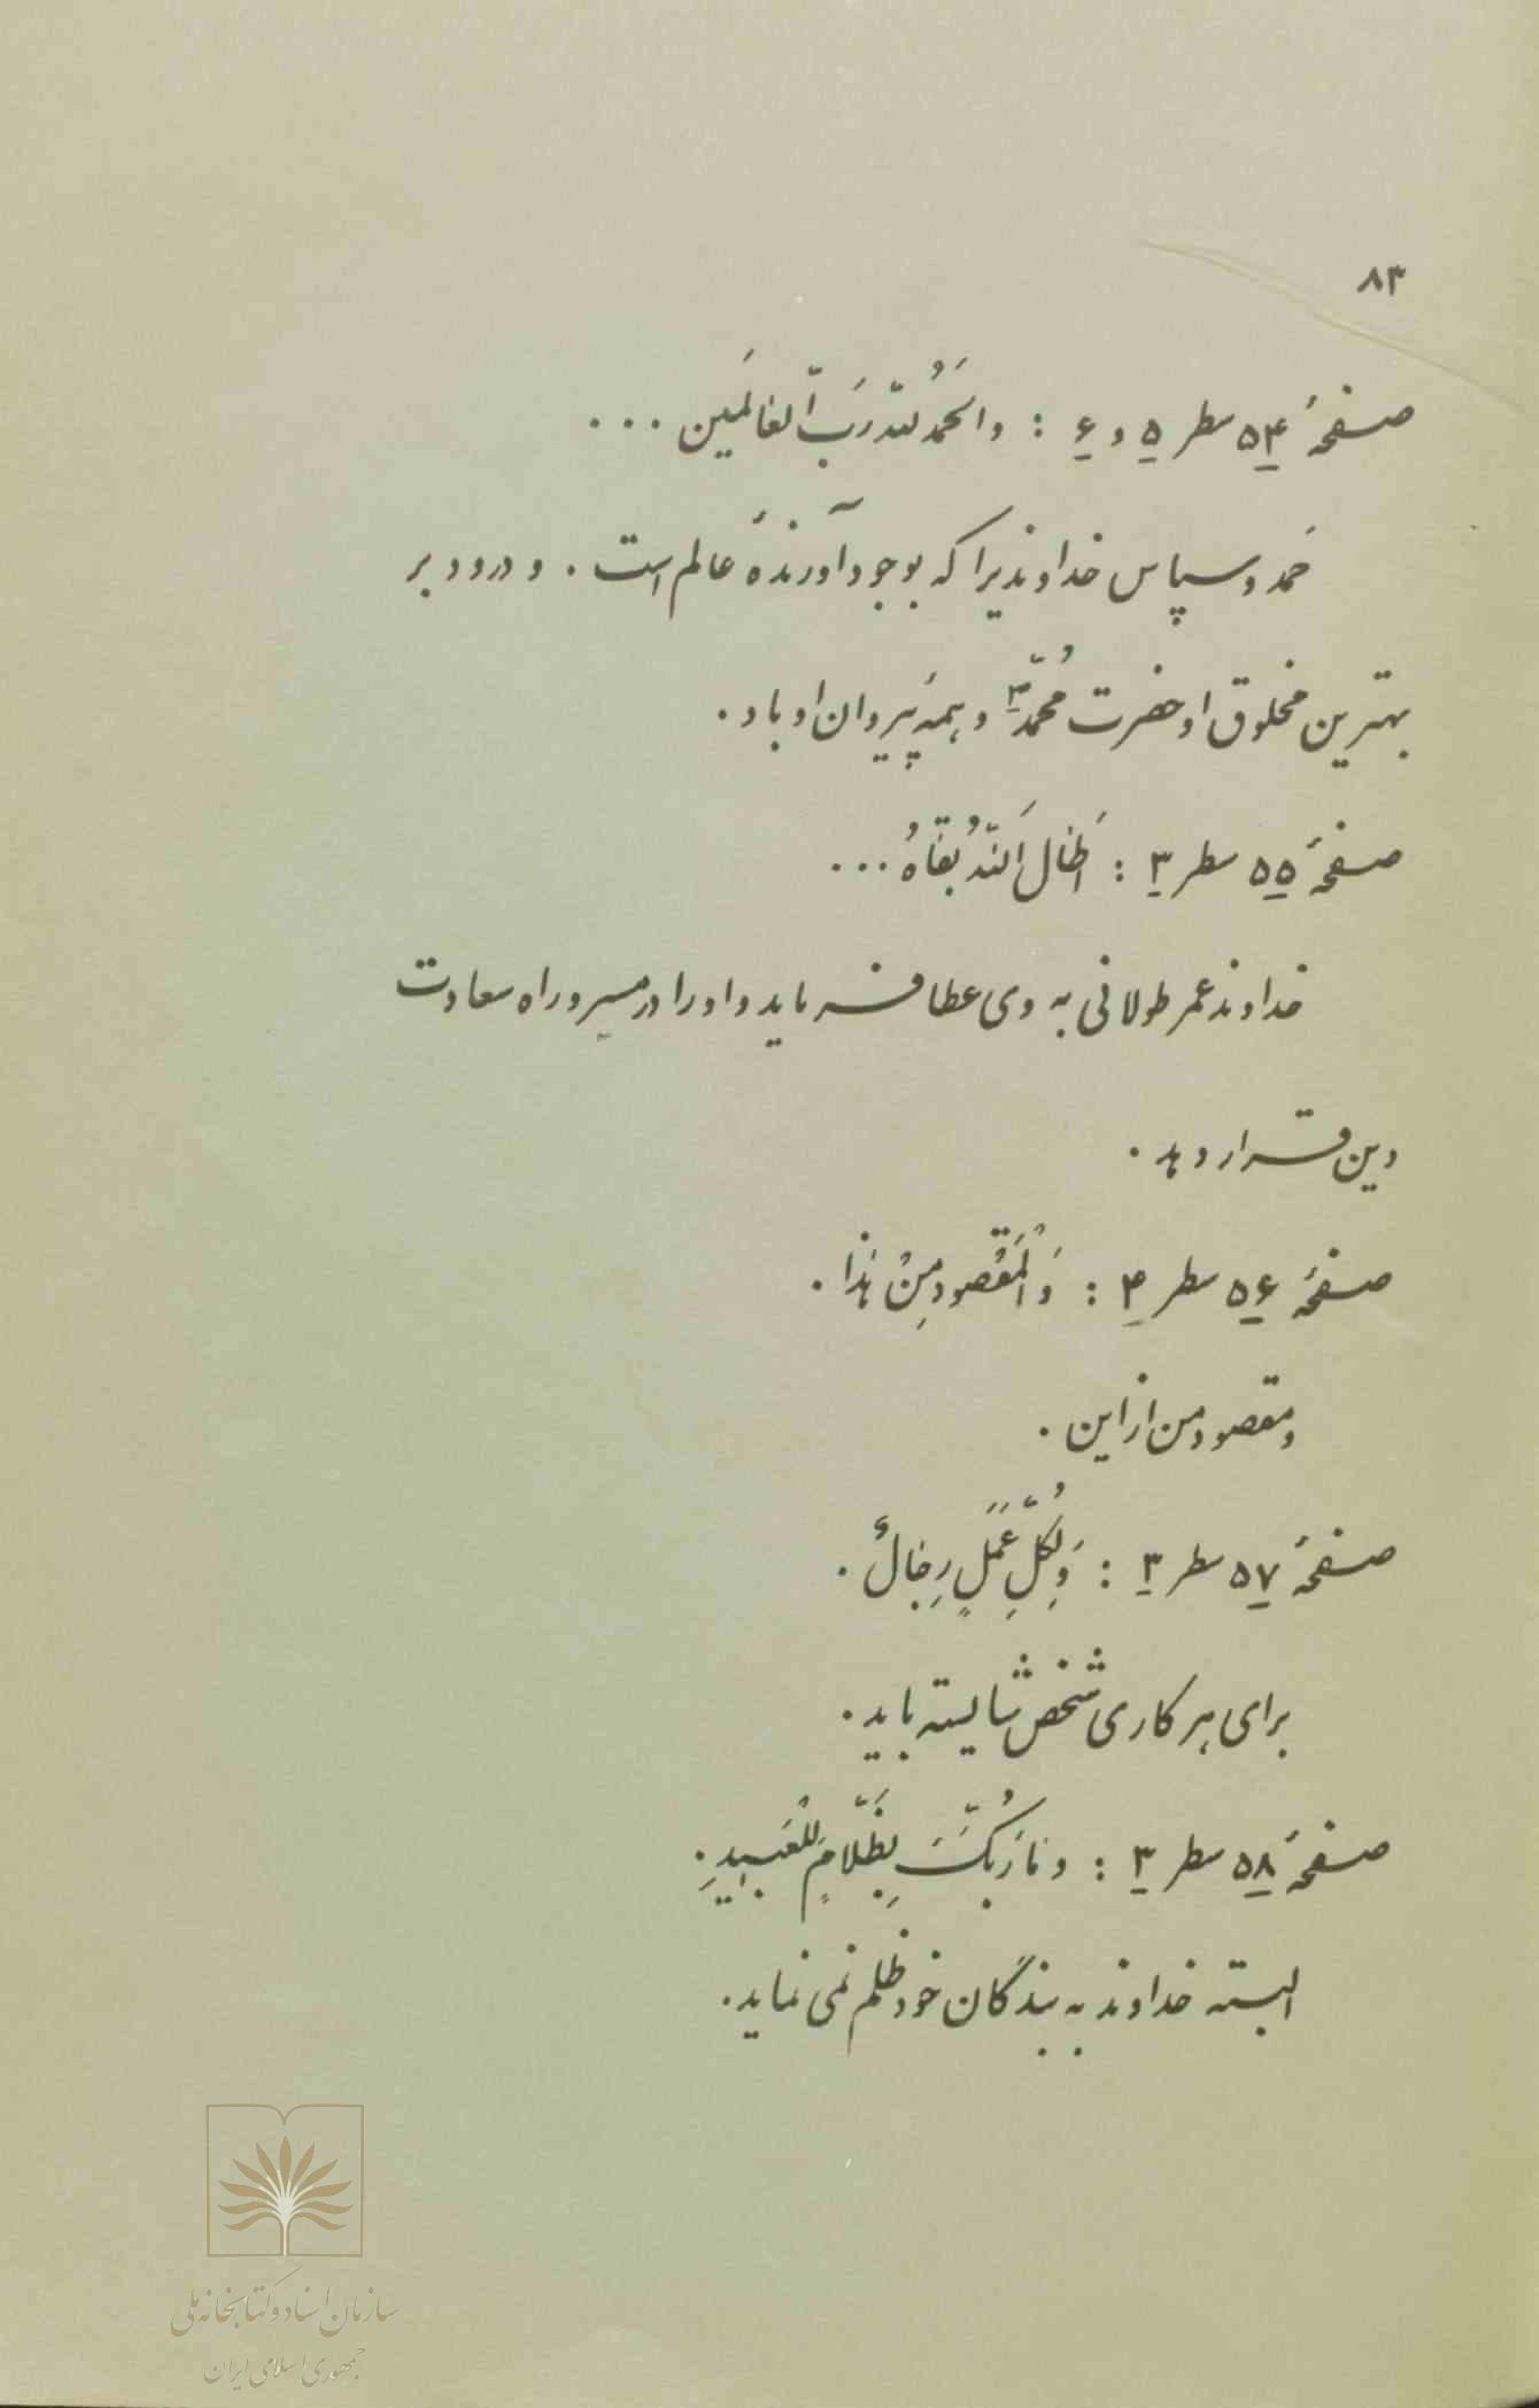 ۸۳
صفحهٔ ۵۴ سطر ۵ و ۶ : والحَمدُ للّه رَبّ العالَمین ...
حَمد و سپاس خداوندیرا که بوجود آورندهٔ عالم است . و درود بر
بهترین مخلوق او حضرت مُحمّد ؐ و همه پَیروان او باد .
صفحهٔ ۵۵ سطر ۳ : اَطالَ اَللّهُ بَقاهُ ...
خداوند عمر طولانی به وی عطا فرماید و او را در مسیر و راه سعادت
دین قرار دهد .
صفحهٔ ۵۶ سطر ۴ : وَ اْلمَقْصود مِنْ هذا .
و مقصود من از این .
صفحهٔ ۵۷ سطر ۳ : وَ لِکُلِّ عَمَلٍ رِجالٌ .
برای هر کاری شخص شایسته باید .
صفحهٔ ۵۸ سطر ۳ : و ما رَبُّکَ بِظَلّامٍ لِلْعَبیدِ .
البته خداوند به بندگان خود ظلم نمی نماید .
سازمان اسناد و کتابخانه ملی
جمهوری اسلامی ایران